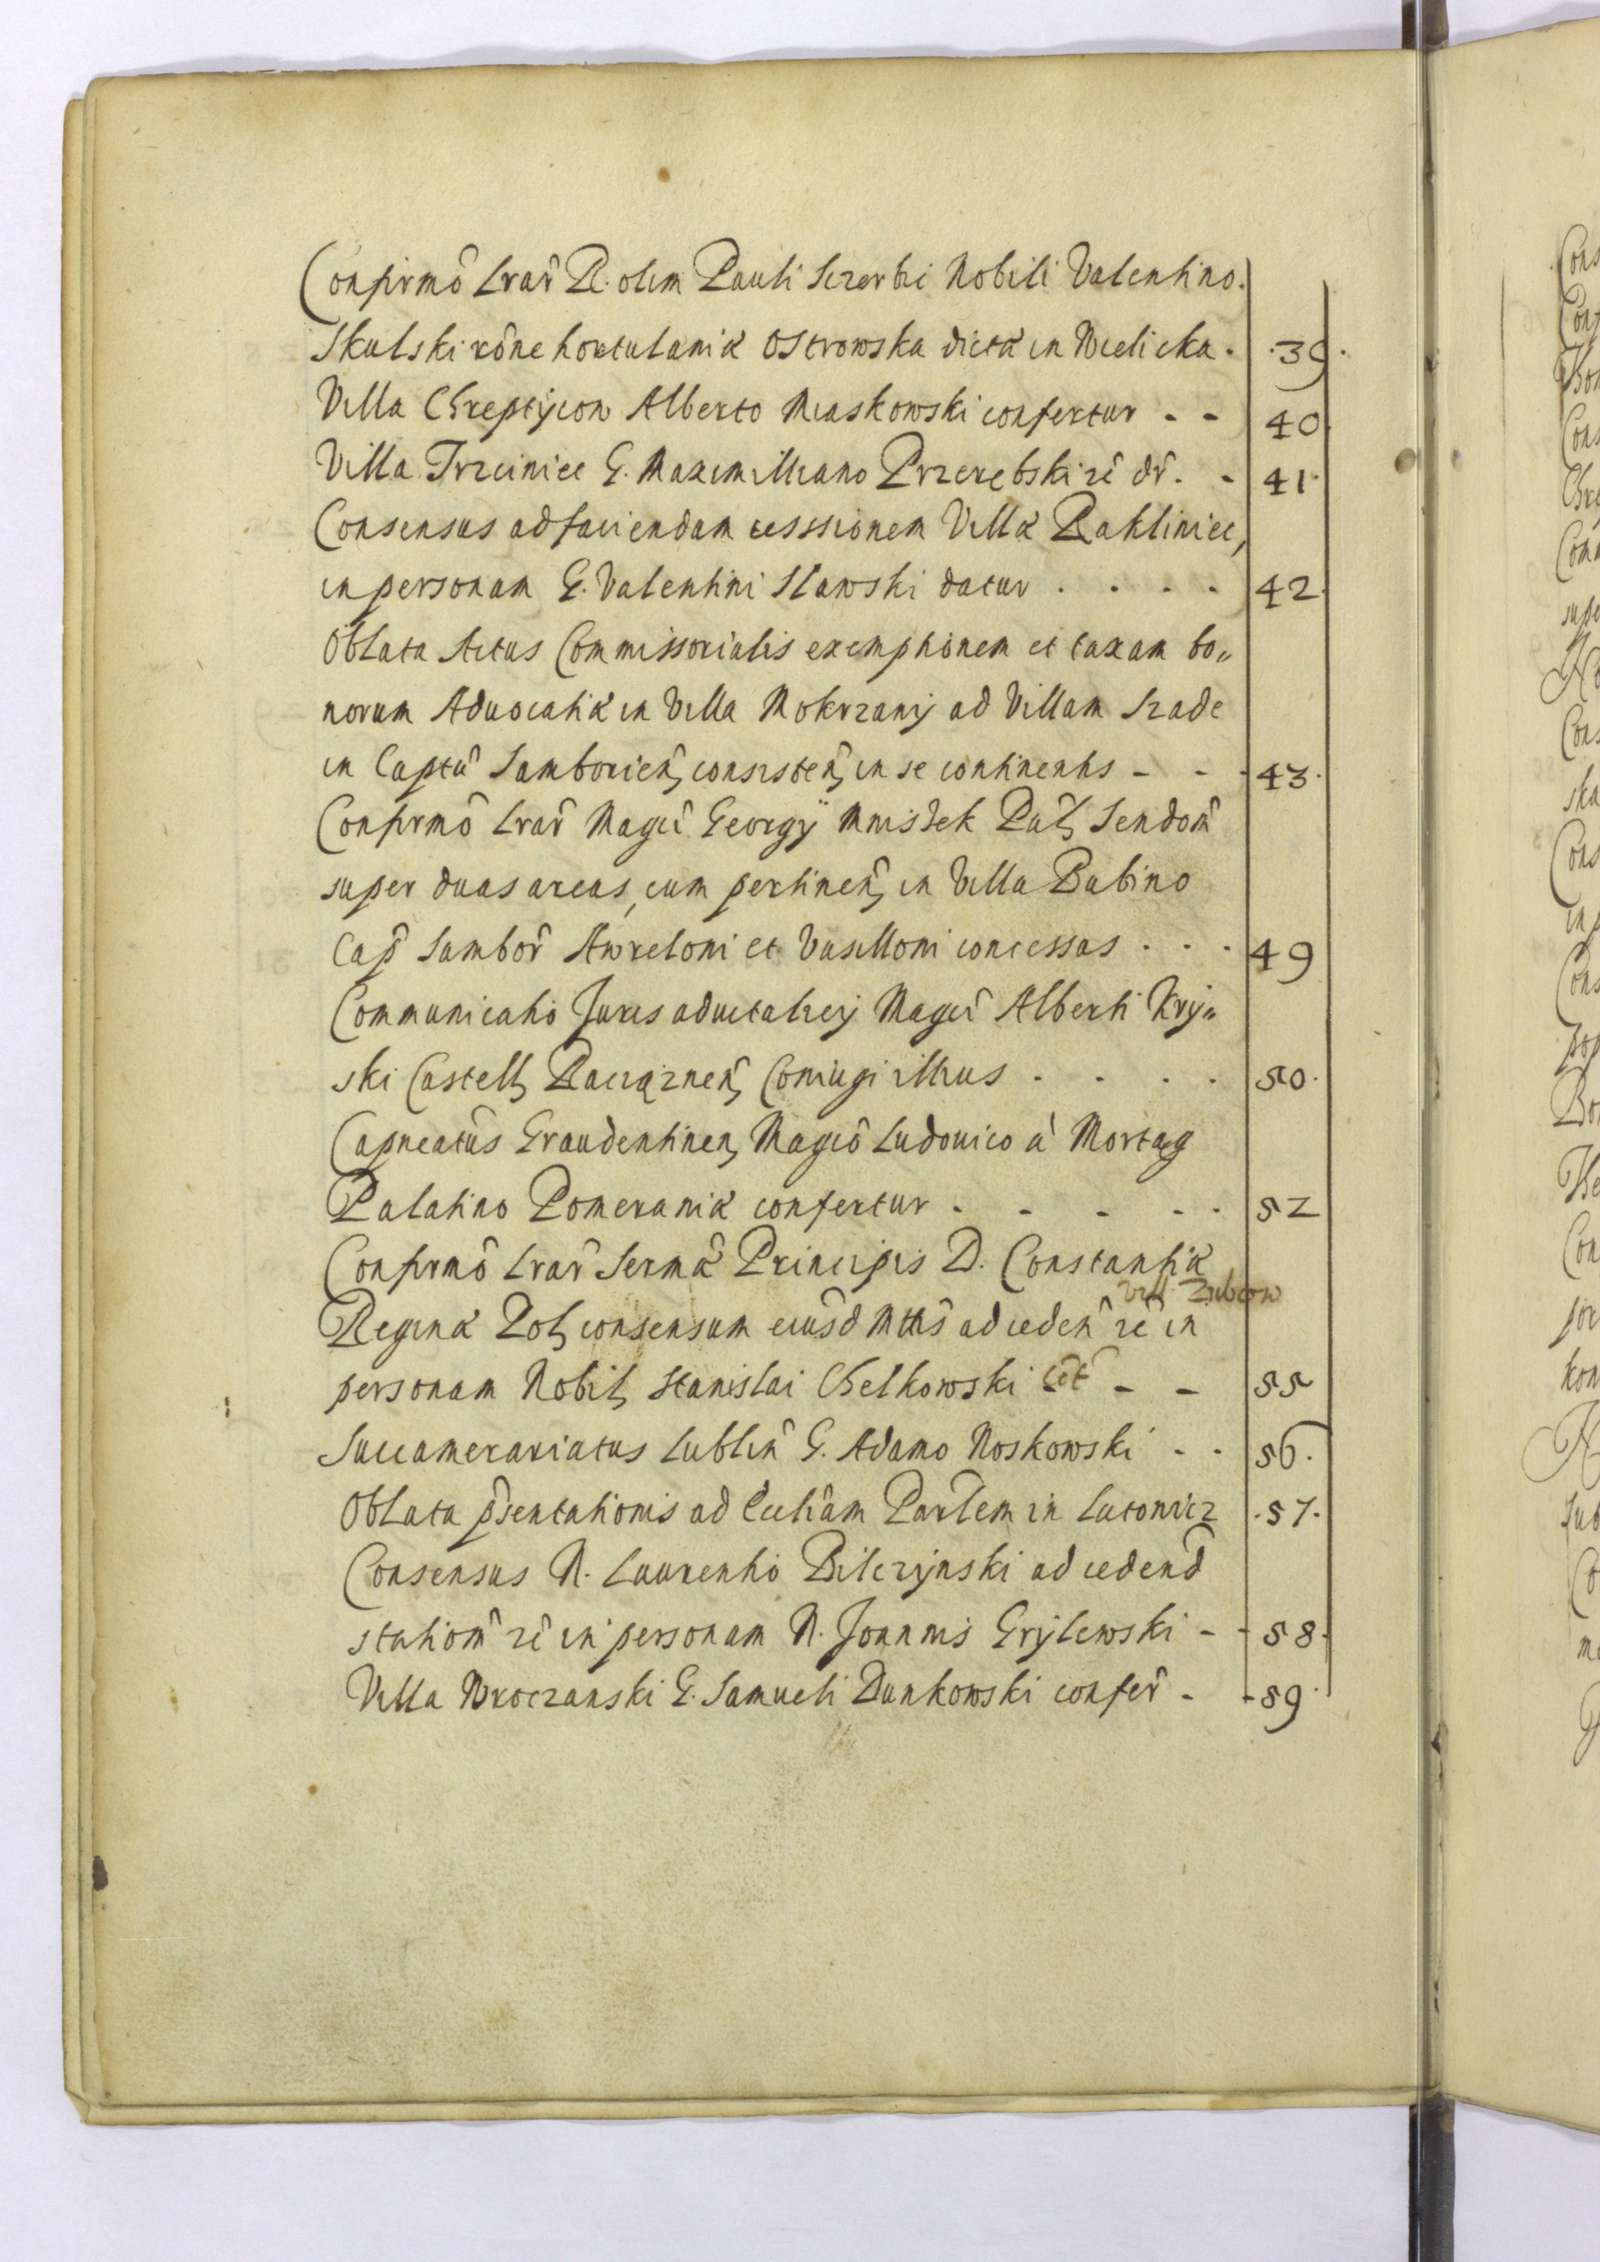 Confirmõ Lrar̃ R. olim Pauli Sczerbic Nobili Valentino
Skulski rõne hortulaniæ Ostrowska dictæ in Wielicka . 39.
Villa Chreptÿiow Alberto Miaskowski confertur - - 40
Villa Trzciniec G. Maximilliano Przerębski rẽ dr̃. - 41.
Consensus ad faciendam cesssionem Villæ Rakliniec,
in personam G. Valentini Slawski datur . . . . 42.
Oblata Actus Commissorialis exemptionem et taxam bo„
norum Aduocatiæ in Villa Mokrzanÿ ad Villam Szade
in Captũ Samborien̄ consisten̄ in se continentis - - - 43.
Confirmõ Lrar̃ Magcĩ Georgÿ Mniszek Pal̃ Sendom̃
super duas areas, cum pertinen̄ in Villa Babino
Cap̃ Sambor̃ Awreloni et Vasilloni concessas . . . 49
Communicatio Juris aduitalicÿ Magcĩ Alberti Krÿ„
ski Castell̄ Raciąznen̄ Coniugi illius . . . . 50.
Capneatũs Graudentinen̄ Magcõ Ludouico à Mortęg
Palatino Pomeraniæ confertur . - - - . 52
Confirmõ Lrar̃ Sermæ̃ Principis D. Constantiæ
Vill. Zubcow
Reginæ Pol̄ consensum eiusd̃ Mttis̃ ad ceden̄ rẽ in
personam Nobil̄ Stanislai Chelkowski - - 55
Succamerariatus Lublin̄ G. Adamo Noskowski - - 56.
Oblata p̃sentationis ad Ecclĩam Parlẽm in Latowicz .57.
Consensus N. Laurentio Bilczÿnski ad cedend̃
stationẽ rẽ in personam N. Joannis Grÿlewski - - 58.
Villa Wroczanski G. Samueli Dunkowski confer̃ - - 59.